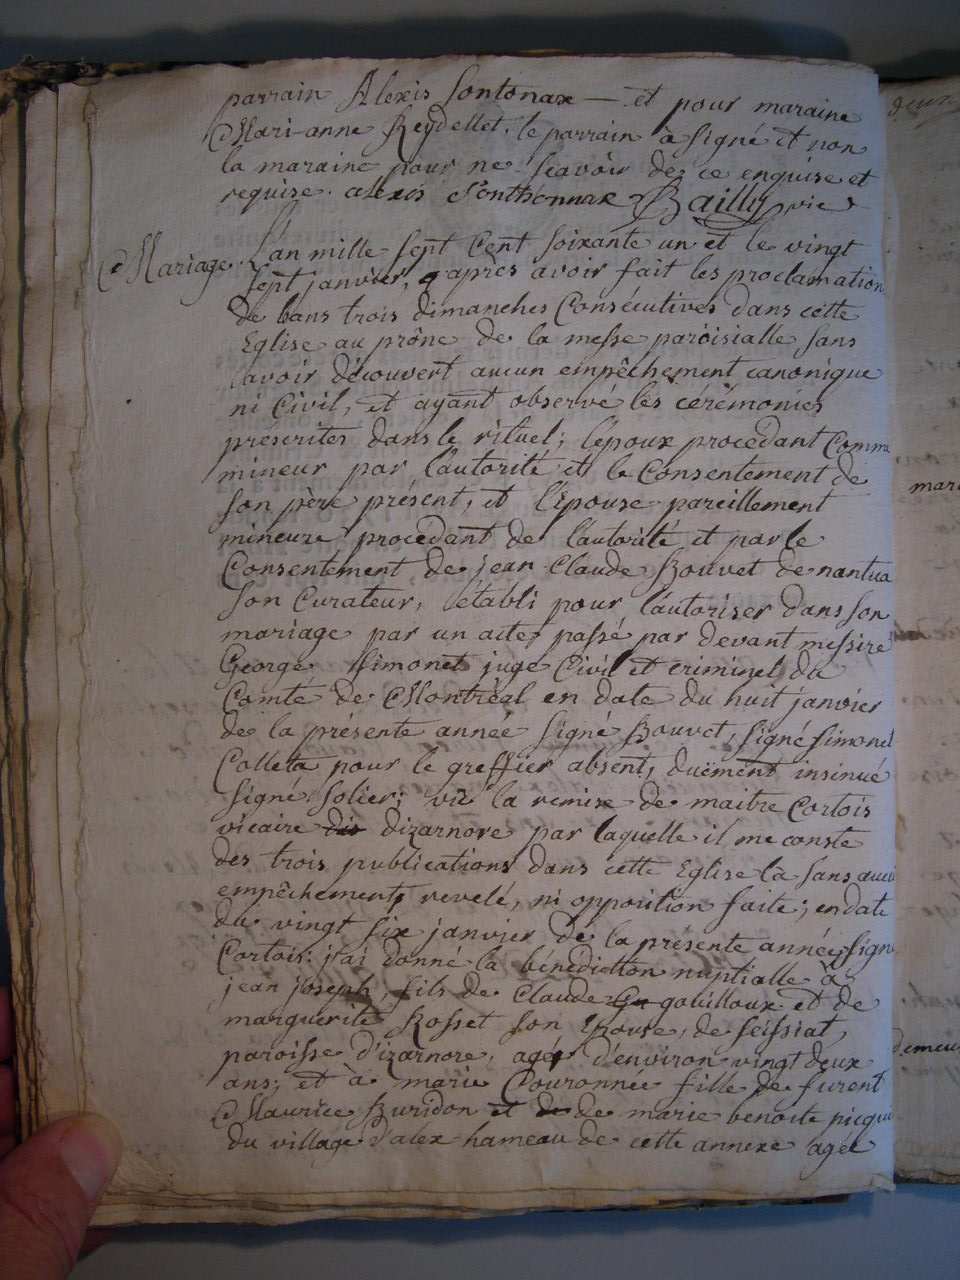 parrain Alexis Sontonax — et pour maraine
Mari-anne Reydellet. le parrain à signé et non
la maraine pour ne scavoir de ce enquise et
requise. alexis Sonthonnax Bailly vic
Mariage. L'an mille sept Cent soixante un et le vingt
sept janvier, après avoir fait les proclamation
de bans trois dimanches Consécutives dans cette
Eglise au prône de la messe paroisialle sans
avoir découvert aucun empêchement canonique
ni Civil, et ayant observé les cérémonies
prescrites dans le rituel; l'epoux procédant Comme
mineur par l'autorité et le Consentement de
son père présent, et l'Epouse pareillement
mineure procédant de l'autorité et par le
Consentement de jean Claude Bouvet de nantua
son Curateur, établi pour l'autoriser dans son
mariage par un acte passé par devant messire
George Simonet juge Civil et criminel du
Comté de Montréal en date du huit janvier
de la présente année signé Bouvet, signé Simonet
Colleta pour le greffier absent, duëment insinué
signé Solier; vû la remise de maitre Cortois
vicaire dizarnore par laquelle il me conste
des trois publications dans cette Eglise là sans aucun
empêchement revelé, ni opposition faite; en date
du vingt six janvier de la présente année signé
Cortois: j'ai donné la bénédiction nuptialle à
jean joseph, fils de Claude gouilloux et de
marguerite Rosset son Epouse, de seissiat,
paroisse d'izarnore, agé d'environ vingt deux
ans; et à marie Couronnée fille de furent
Maurice Buridon et de marie benoite picquet
du village d'alex hameau de cette annexe agée